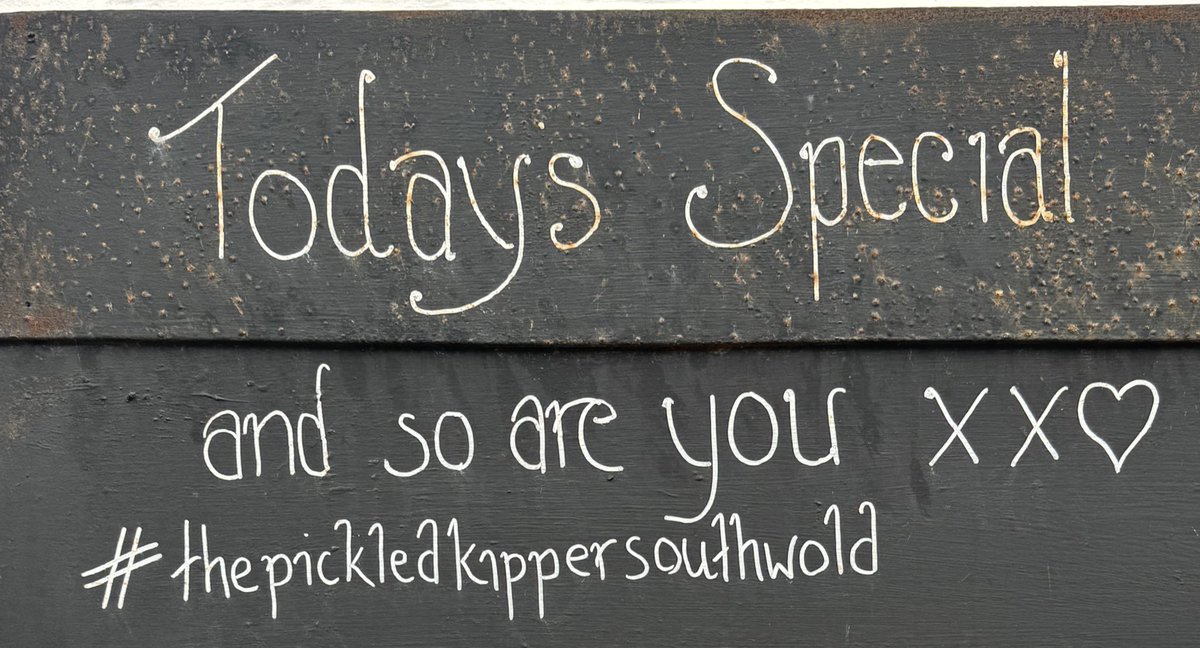 Todays Special
and so are you xx♡
#thepickledkippersouthwold